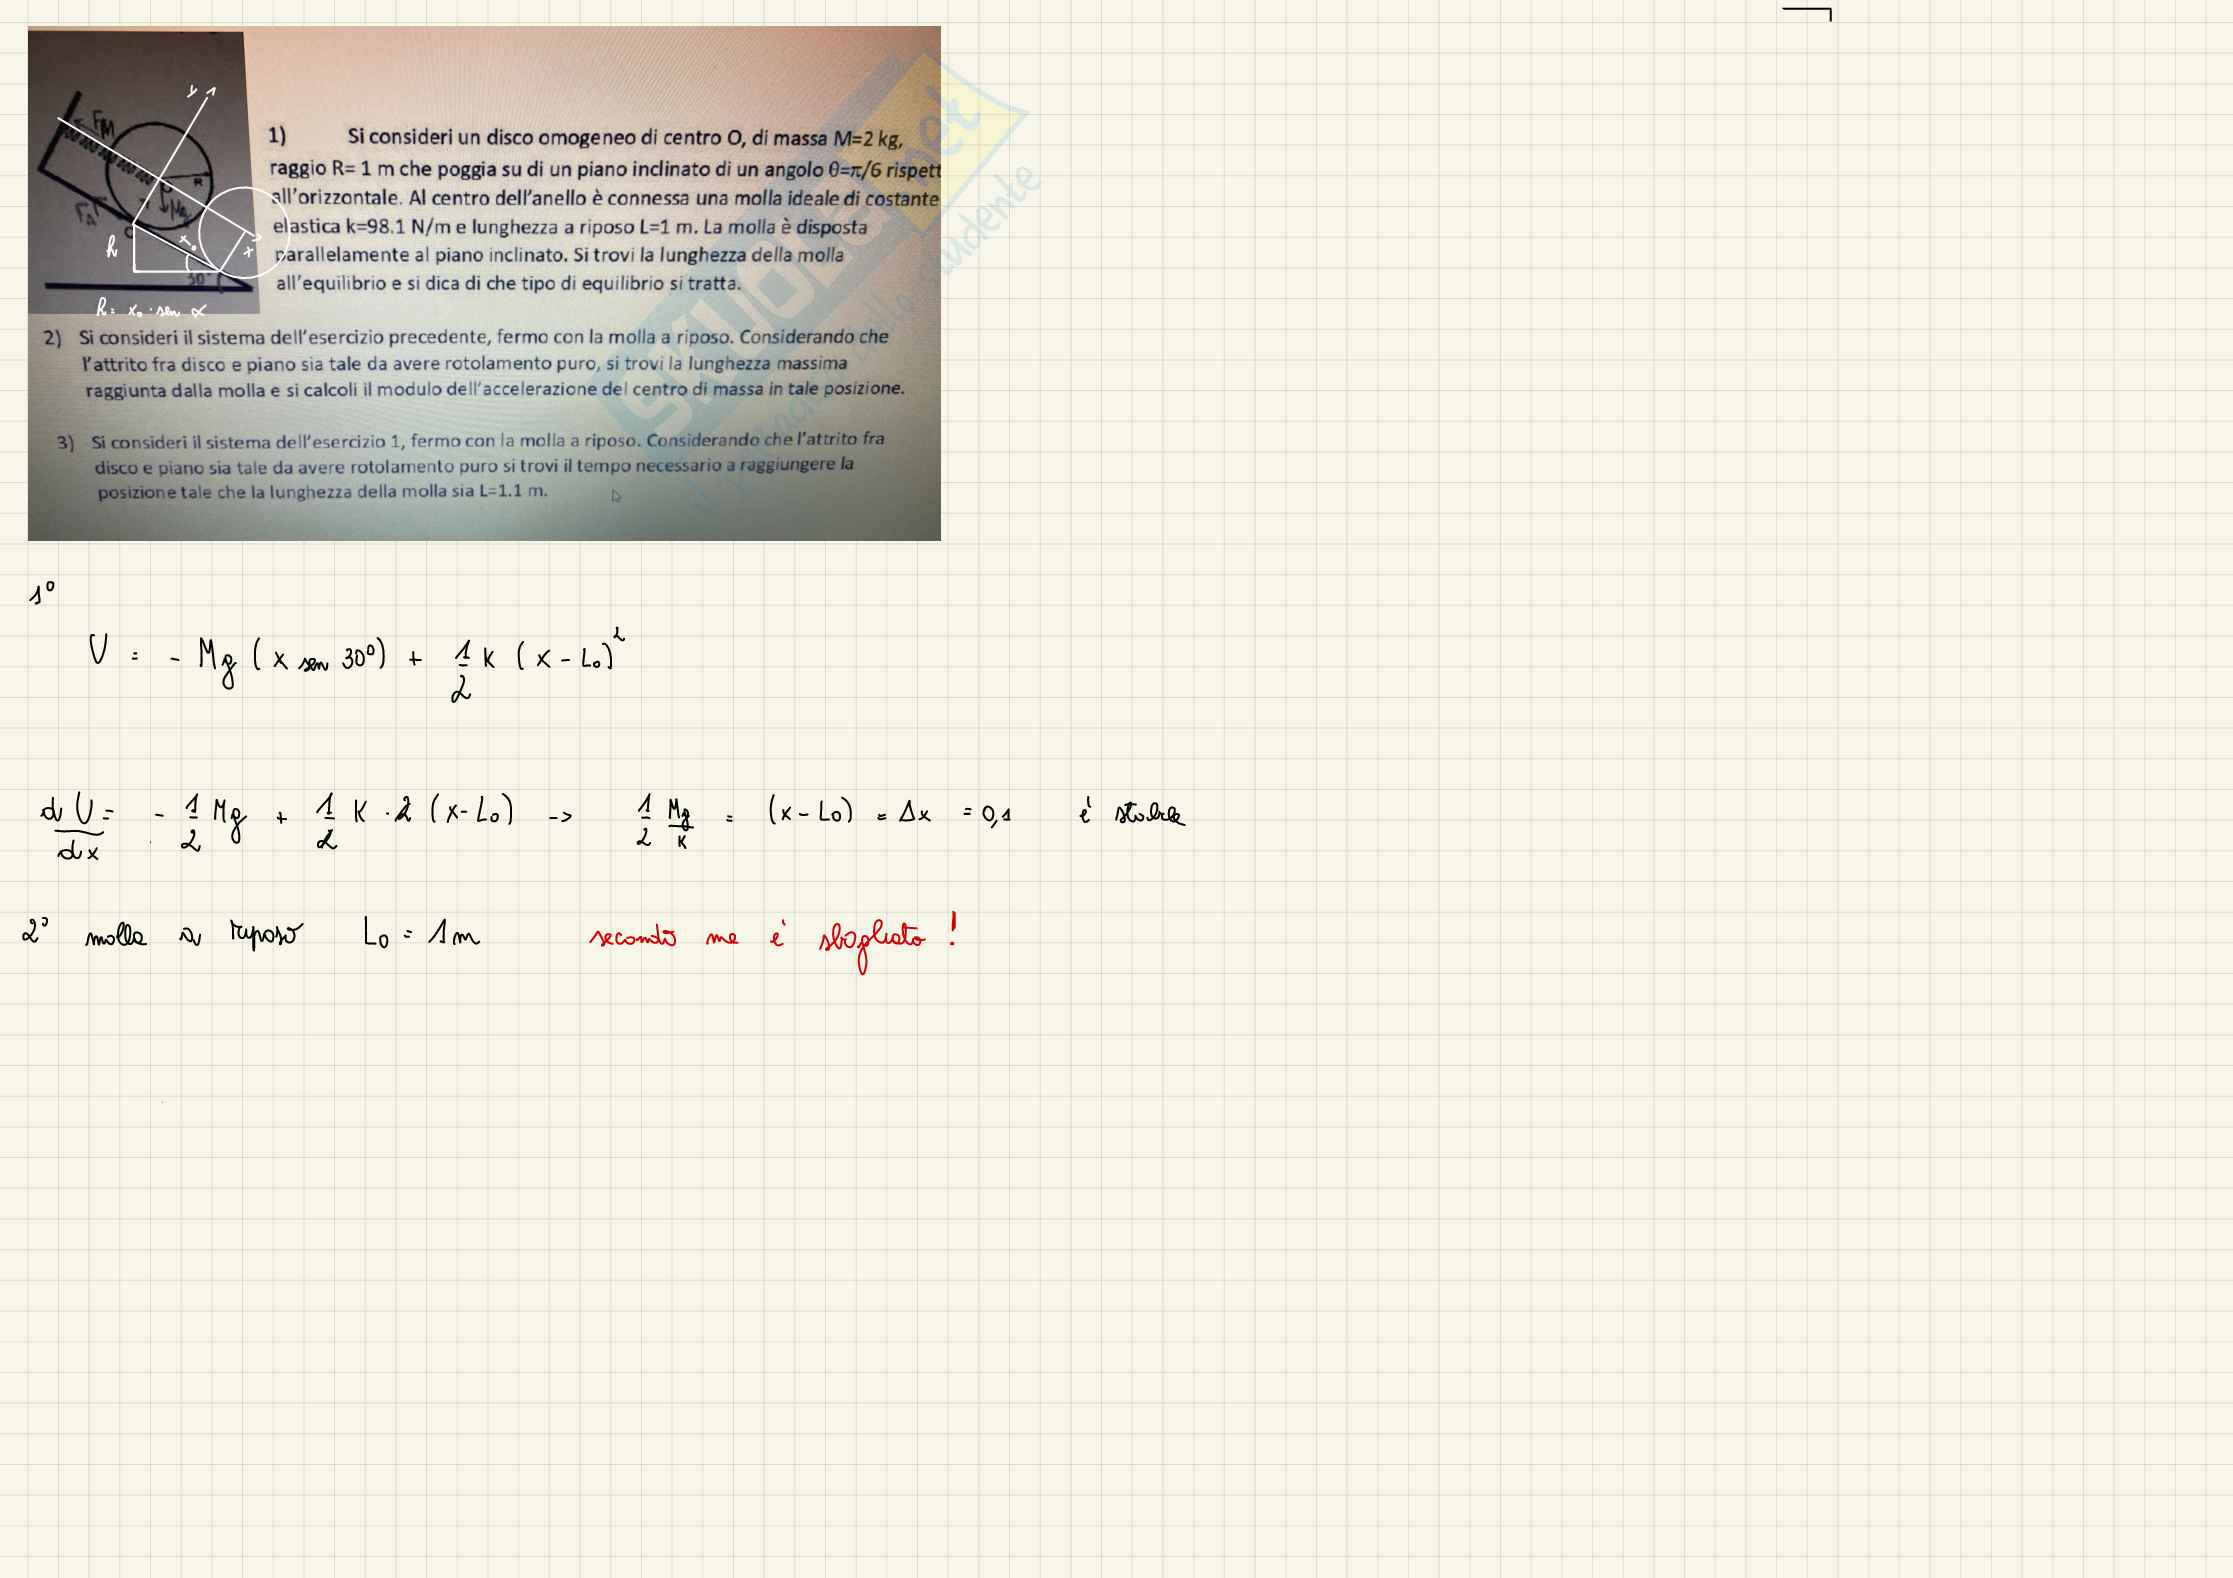 1) Si consideri un disco omogeneo di centro O, di massa M=2 kg,
raggio R= 1 m che poggia su di un piano inclinato di un angolo θ=π/6 rispett
all'orizzontale. Al centro dell'anello è connessa una molla ideale di costante
elastica k=98.1 N/m e lunghezza a riposo L=1 m. La molla è disposta
parallelamente al piano inclinato. Si trovi la lunghezza della molla
all'equilibrio e si dica di che tipo di equilibrio si tratta.
y
FM
R
Mg
FA
h
x₀
x
30°
h = x₀ · sen α
2) Si consideri il sistema dell'esercizio precedente, fermo con la molla a riposo. Considerando che
l'attrito fra disco e piano sia tale da avere rotolamento puro, si trovi la lunghezza massima
raggiunta dalla molla e si calcoli il modulo dell'accelerazione del centro di massa in tale posizione.
3) Si consideri il sistema dell'esercizio 1, fermo con la molla a riposo. Considerando che l'attrito fra
disco e piano sia tale da avere rotolamento puro si trovi il tempo necessario a raggiungere la
posizione tale che la lunghezza della molla sia L=1.1 m.
1°
U = - Mg (x sen 30°) + 1/2 K (x - L₀)²
dU/dx = - 1/2 Mg + 1/2 K · 2 (x - L₀) -> 1/2 Mg/K = (x - L₀) = Δx = 0,1 è stabile
2° molla a riposo L₀ = 1m secondo me è sbagliato !